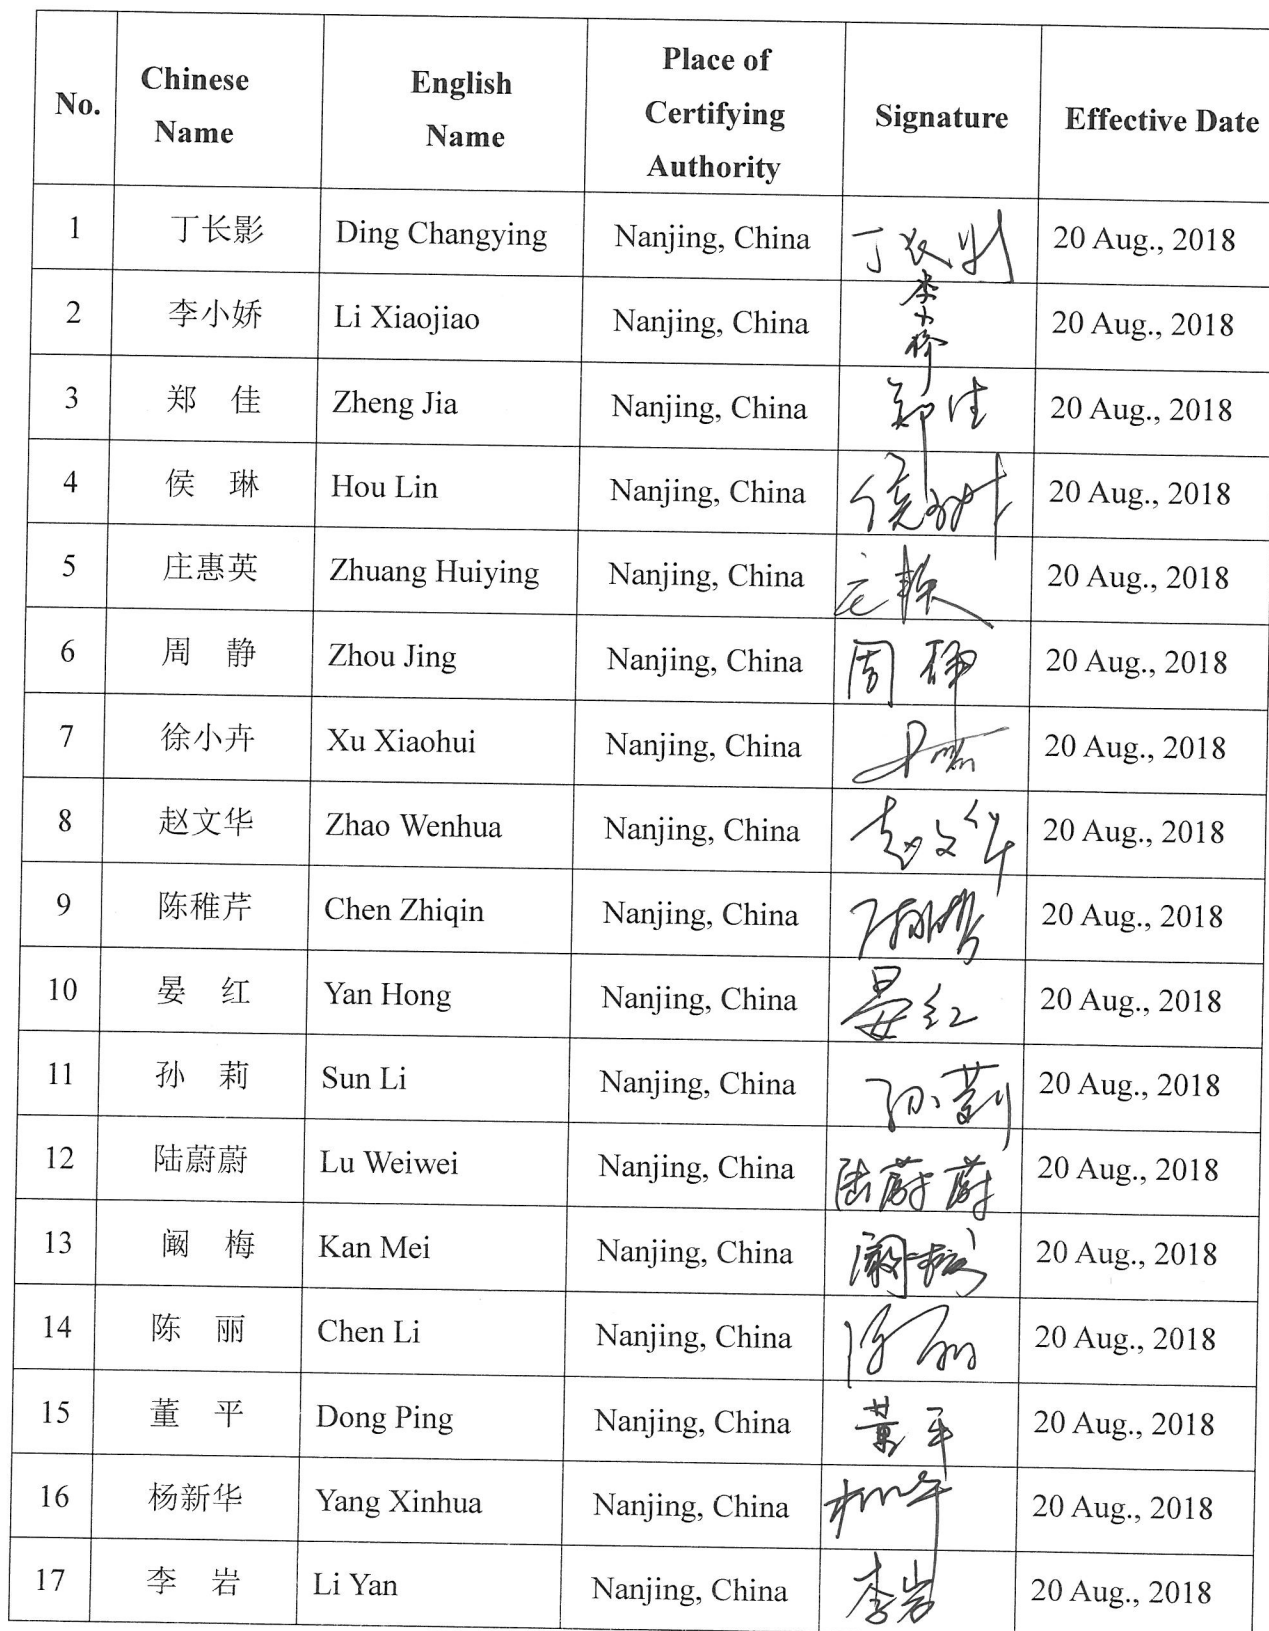 No. Chinese Name English Name Place of Certifying Authority Signature Effective Date
1 丁长影 Ding Changying Nanjing, China 丁长影 20 Aug., 2018
2 李小娇 Li Xiaojiao Nanjing, China 李小娇 20 Aug., 2018
3 郑 佳 Zheng Jia Nanjing, China 郑佳 20 Aug., 2018
4 侯 琳 Hou Lin Nanjing, China 侯琳 20 Aug., 2018
5 庄惠英 Zhuang Huiying Nanjing, China 20 Aug., 2018
6 周 静 Zhou Jing Nanjing, China 周静 20 Aug., 2018
7 徐小卉 Xu Xiaohui Nanjing, China 20 Aug., 2018
8 赵文华 Zhao Wenhua Nanjing, China 赵文华 20 Aug., 2018
9 陈稚芹 Chen Zhiqin Nanjing, China 20 Aug., 2018
10 晏 红 Yan Hong Nanjing, China 晏红 20 Aug., 2018
11 孙 莉 Sun Li Nanjing, China 孙莉 20 Aug., 2018
12 陆蔚蔚 Lu Weiwei Nanjing, China 陆蔚蔚 20 Aug., 2018
13 阚 梅 Kan Mei Nanjing, China 阚梅 20 Aug., 2018
14 陈 丽 Chen Li Nanjing, China 陈丽 20 Aug., 2018
15 董 平 Dong Ping Nanjing, China 董平 20 Aug., 2018
16 杨新华 Yang Xinhua Nanjing, China 20 Aug., 2018
17 李 岩 Li Yan Nanjing, China 李岩 20 Aug., 2018